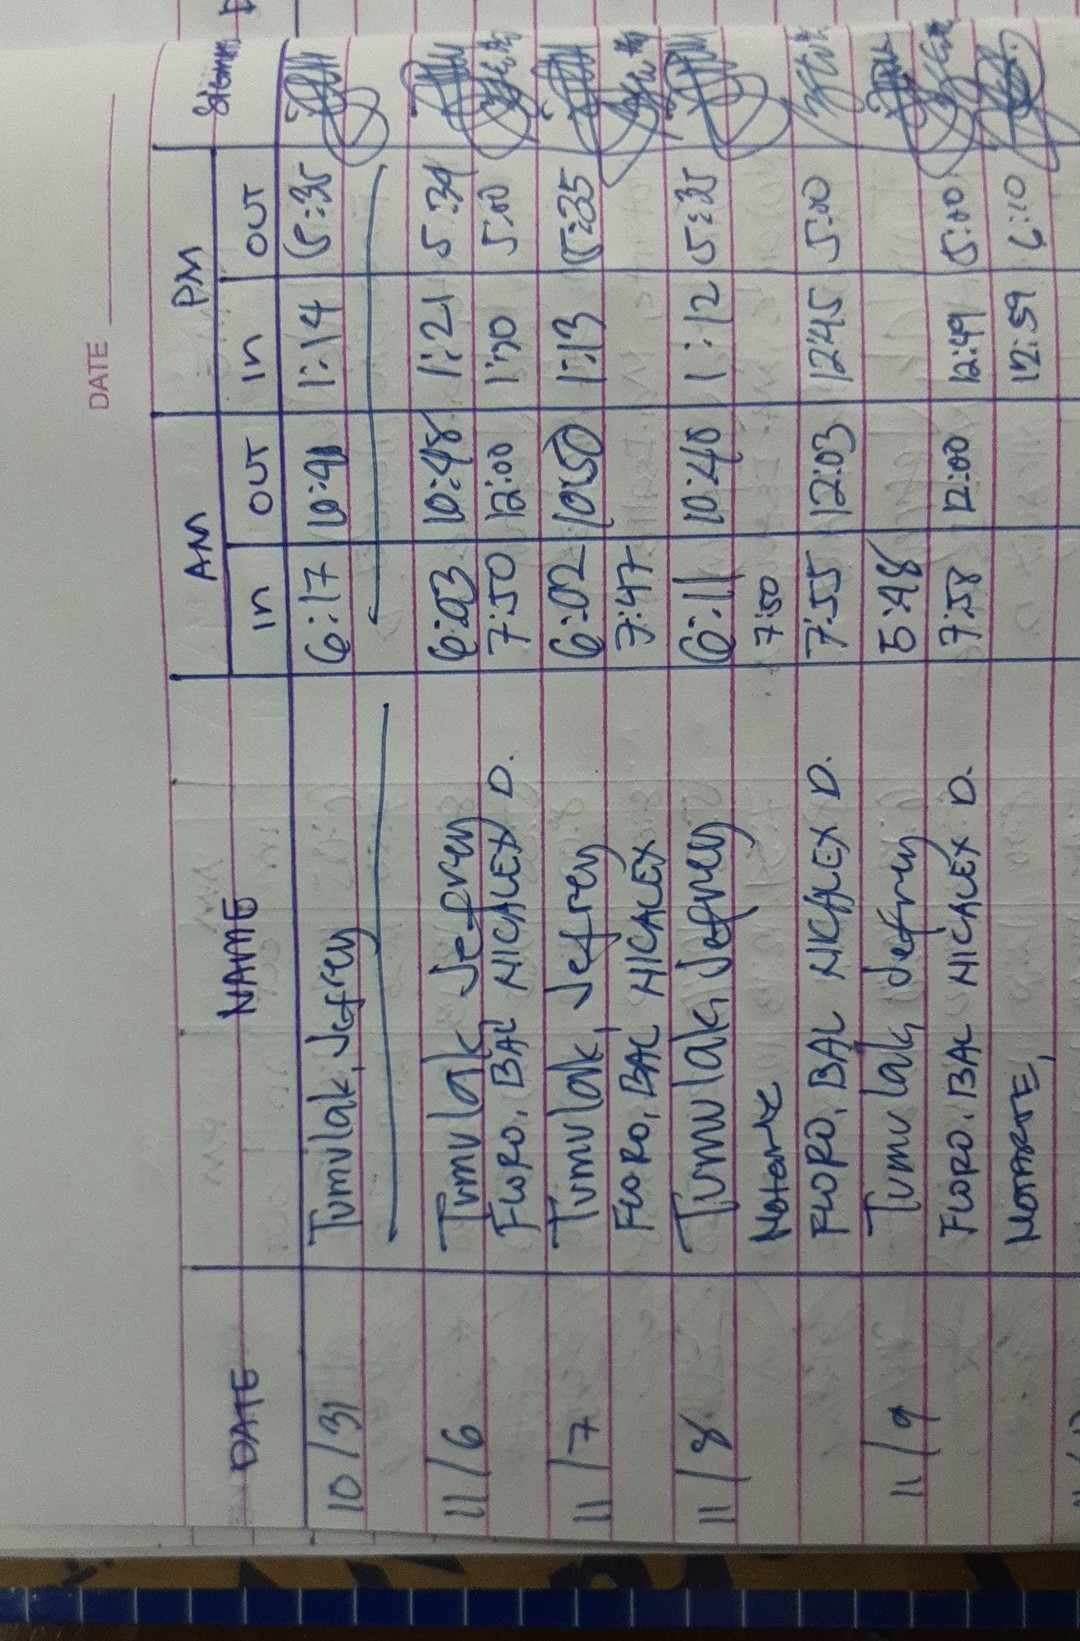 DATE
AM PM
DATE NAME In OUT In OUT
10/31 Tumulak, Jefrey 6:17 1:14 5:35
11/6 Tumulak Jefrey 6:03 10:48 1:21 5:34
FLORO, BAL NICALEX D. 7:50 12:00 5:00
11/7 Tumulak, Jefrey 6:02 10:50 1:13 5:35
FLORO, BAL NICALEX 7:47
11/8 Tumulak, Jefrey 6:11 10:48 1:12 5:35
Notarte 7:50
FLORO, BAL NICALEX D. 7:55 12:03 12:45 5:00
11/9 Tumulak, Jefrey 5:48
FLORO, BAL NICALEX D. 7:58 12:00 12:49 5:00
NOTARTE, 12:59 6:10